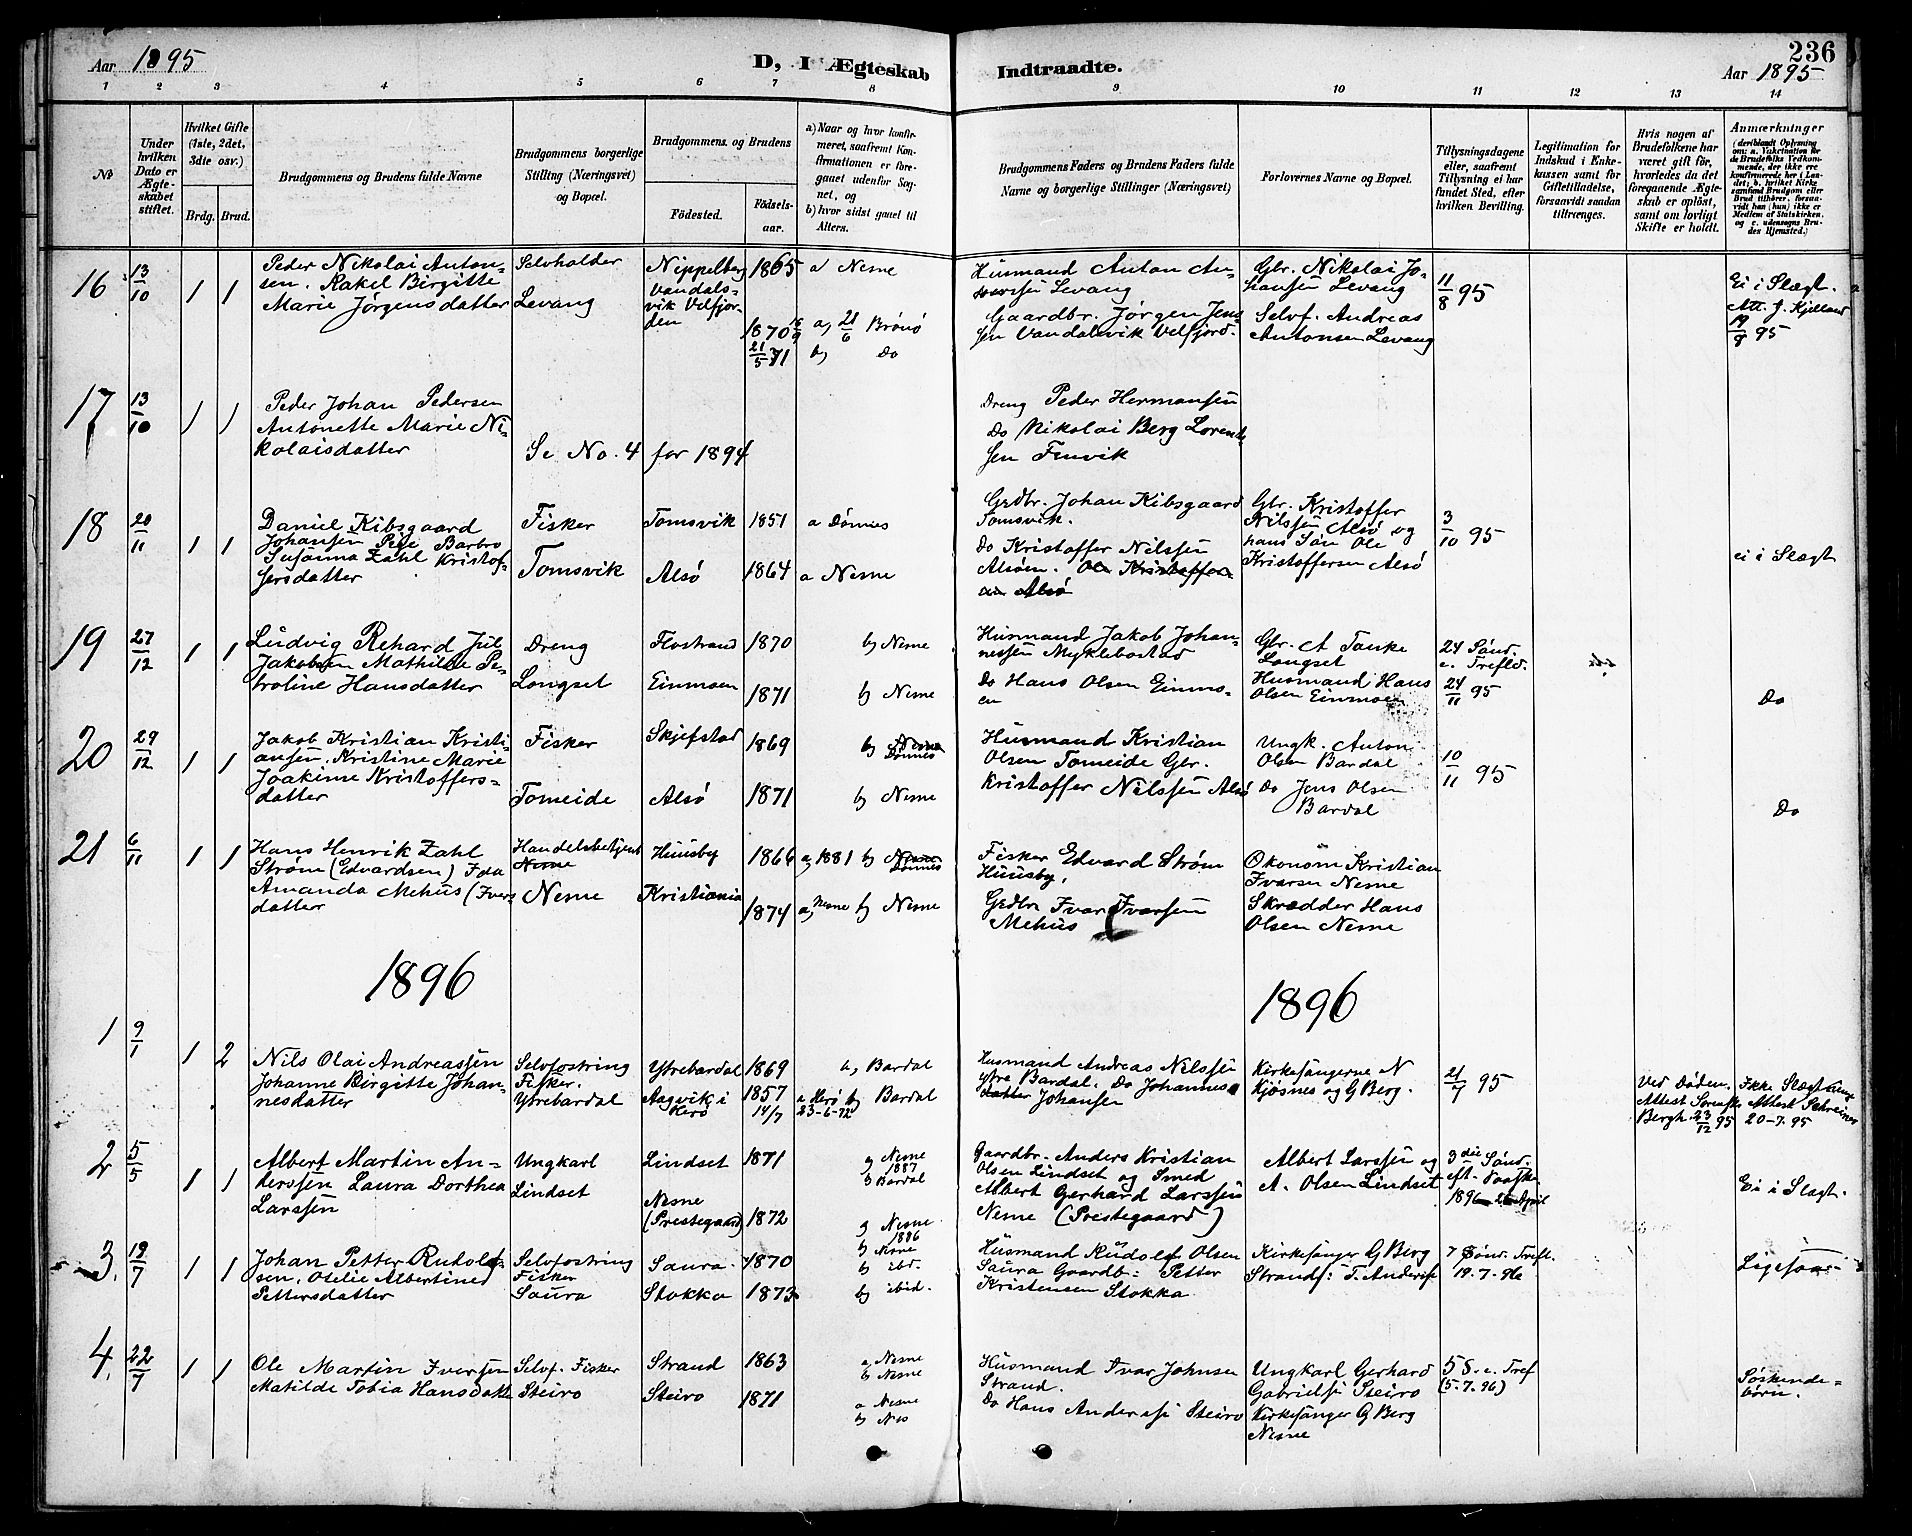 Aar 1895
D, I Ægteskab
Indtraadte.
236
Aar 1895
1 2 3 4 5 6 7 8 9 10 11 12 13 14
No
Under hvilken Dato er Ægteskabet stiftet.
Hvilket Gifte (1ste, 2det, 3die osv.)
Brdg. Brud.
Brudgommens og Brudens fulde Navne
Brudgommens borgerlige Stilling (Næringsvei) og Bopæl.
Brudgommens og Brudens
Fødested.
Fødselsaar.
a) Naar og hvor konfirmeret, saafremt Konfirmationen er foregaaet udenfor Sognet, og
b) hvor sidst gaaet til Alters.
Brudgommens Faders og Brudens Faders fulde Navne og borgerlige Stillinger (Næringsvei)
Forlovernes Navne og Bopæl.
Tillysningsdagene eller, saafremt Tillysning ei har fundet Sted, efter hvilken Bevilling.
Legitimation for Indskud i Enkekassen samt for Giftetilladelse, forsaavidt saadan tiltrænges.
Hvis nogen af Brudefolkene har været gift før, hvorledes da det foregaaende Ægteskab er opløst, samt om lovligt Skifte er holdt.
Anmærkninger
16 13/10 1 1
Peder Nikolai Anton-
sen. Rakel Birgitte
Marie Jørgensdatter
Selvholder
Levang
Nippelberg
Vandals-
vik Velfjor-
den
1865
1870 16/9
21/5 71
a Nesne
a, 21/6 Brønø
b, Do
Husmand Anton An-
Levang
Gaardbr. Jørgen Jens
sen Vandalsvik Velfjord.
Gbr. Nikolai Jo-
hansen Levang
Selvf. Andreas
Antonsen Levang
11/8 95
Ei i Slægt.
Att. J. Kjelland
19/8 95
17 13/10 1 1
Peder Johan Pedersen
Antonette Marie Ni-
kolaisdatter
Se No. 4 for 1894
Dreng Peder Hermansen
Do Nikolai Berg Lorent-
sen Finvik
18 20/11 1 1
Daniel Kibsgaard
Johansen Barbro
Susanna Zahl Kristof-
fersdatter
Fisker
Tomsvik
Tomsvik
Alsø
1851
1864
a Dønnes
a Nesne
Grdbr. Johan Kibsgaard
Tomsvik.
Do Kristoffer Nilssen
Alsøen. Ole Kristoffer-
sen Alsø
Gbr. Kristoffer
Nilssen Alsø og
hans Søn Ole
Kristoffersen Alsø
3/10 95
ei i Slægt
19 27/12 1 1
Ludvig Rehard Jul
Jakobsen Mathilde Pe-
troline Hansdatter
Dreng
Longset
Flostrand
Einmoen
1870
1871
b, Nesne
b, Nesne
Husmand Jakob Johan-
nessen Myklebostad
Do Hans Olsen Einmo-
en
Gbr. A Tanke
Longset
Husmand Hans
Olsen Einmoen
24 Sønd.
e. Trefld.
24/11 95
Do
20 29/12 1 1
Jakob Kristian Kristi-
ansen. Kristine Marie
Joakime Kristoffers-
datter
Fisker
Tomeide
Skjefstad
Alsø
1869
1871
b, Nesne
Dønnes
b, Nesne
Husmand Kristian
Olsen Tomeide Gbr.
Kristoffer Nilssen Alsø
Ungk. Anton
Olsen Bardal
Do Jens Olsen
Bardal
10/11 95
Do
21 6/11 1 1
Hans Henrik Zahl
Strøm (Edvardsen) Ida
Amanda Mehus (Ivers
datter
Handelsbetjent
Nesne
Nesne
Huusby
Kristiania
1866
1874
a, 1881 b, Nesne
Dønnes
a, Nesne b, Nesne
Fisker Edvard Strøm
Huusby.
Grdbr Ivar Ivarsen
Mehus
Økonom Kristian
Ivarsen Nesne
Skrædder Hans
Olsen Nesne
1896
1896
1 9/1 1 2
Nils Olai Andreassen
Johanne Birgitte Johan-
nesdatter
Selvfostring
Fisker.
Ytrebardal
Ytrebardal
Aagvik i
Herø
1869
1857
14/7
b, Bardal
a Herø b, Bardal
23-6-72
Husmand Andreas Nilssen
Ytre Bardal. Do Johannes
datter Johansen
Kirkesangerne N
Kjøsnes og G Berg.
21/7 95
Ved Døden.
Attest
Bergh. 23/12 95
Ikke Slægtninge
Attest Schreiner
20-7.95
2 5/5 1 1
Albert Martin An-
derssen Laura Dorthea
Larssen
Ungkarl
Lindset
Lindset
Nesne
(Prestegaard)
1871
1872
a Nesne
1887
b Bardal
a Nesne
1886
b, Nesne
Gaardbr. Anders Kristian
Olsen Lindset og Smed
Albert Gerhard Larssen
Nesne (Prestegaard)
Albert Larssen og
A. Olsen Lindset
3 die Sønd.
eft. Paaske
1896 26 April
Ei i Slægt.
3. 19/7 1 1
Johan Petter Rudolf-
sen. Otelie Albertine
Pettersdatter
Selvfostring
Fisker
Saura
Saura
Stokka
1870
1873
b ibd.
b, ibid.
Husmand Rudolf Olsen
Saura Gaardb: Petter
Kristensen Stokka
Kirkesanger G Berg
Strand: T. Anders
7 Sønd. Trefl.
19.7.96
Ligesaa
4. 22/7 1 1
Ole Martin Iversen
Matilde Tobia Hansdatte
Selvf. Fisker
Steiro
Strand
Steiro
1863
1871
a Nesne
b Nesne
a Nesne
b, Nes
Husmand Ivar Johnsen
Strand.
Do Hans Anders Steiro
Ungkarl Gerhard
Gabriels Steiro
Kirkesanger G Berg
Nesne
5 S. e. Tref
(5.7.96)
Søskende=
børn.